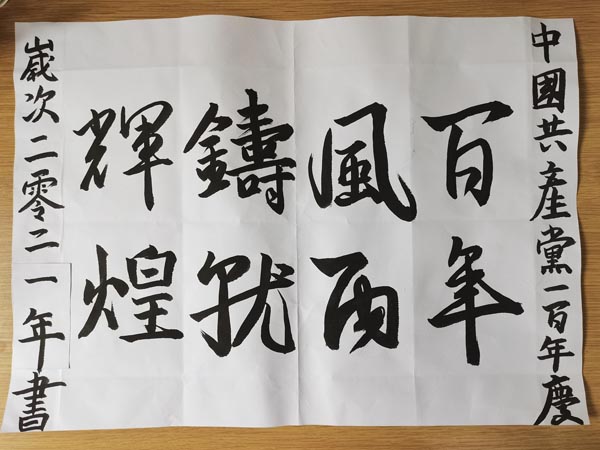 中國共產黨一百年慶
百年
風雨
鑄就
輝煌
歲次二零二一年書